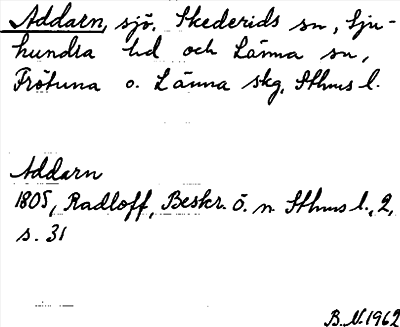 Addarn, sjö. Skederids sn, Sju-
hundra hd och Länna sn,
Frötuna o. Länna skg, Sthms l.
Addarn
1805, Radloff, Beskr. ö. n. Sthms l., 2,
s. 31
B.N. 1962